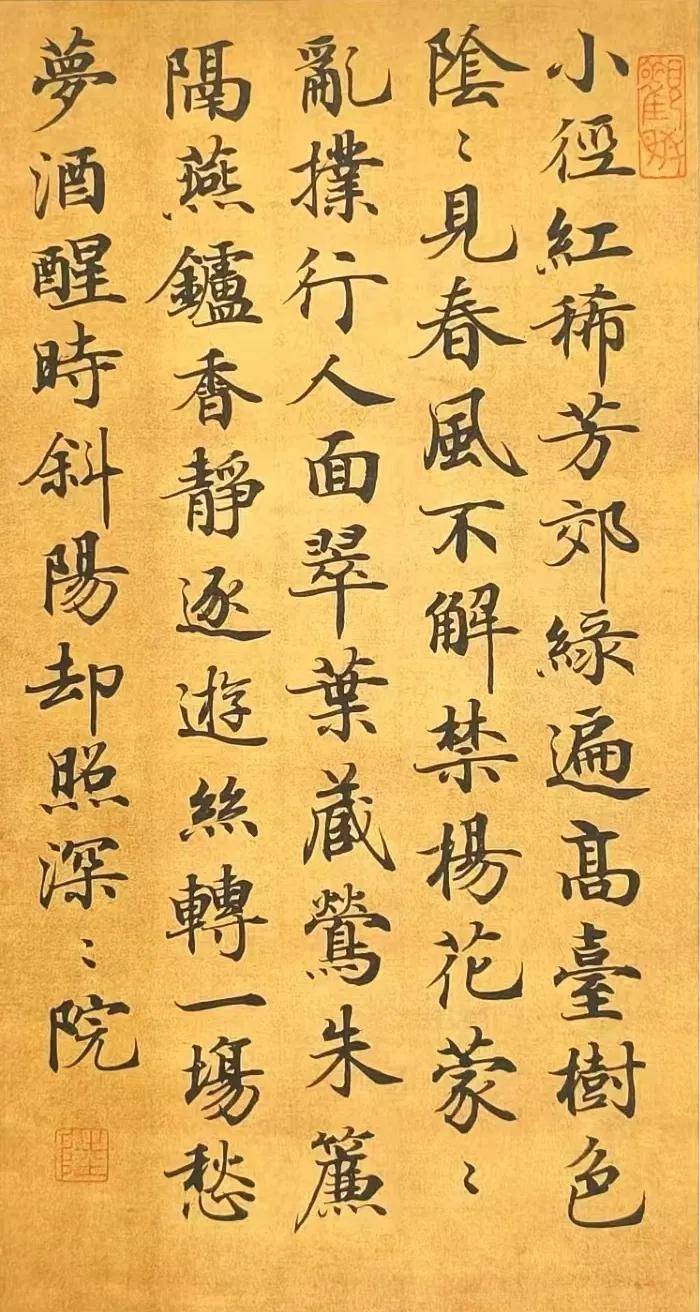 小徑紅稀芳郊緑遍髙臺樹色
陰〻見春風不解禁楊花蒙〻
亂撲行人面翠葉蔵鶯朱簾
隔燕鑪香靜逐遊絲轉一塲愁
夢酒醒時斜陽却照深〻院